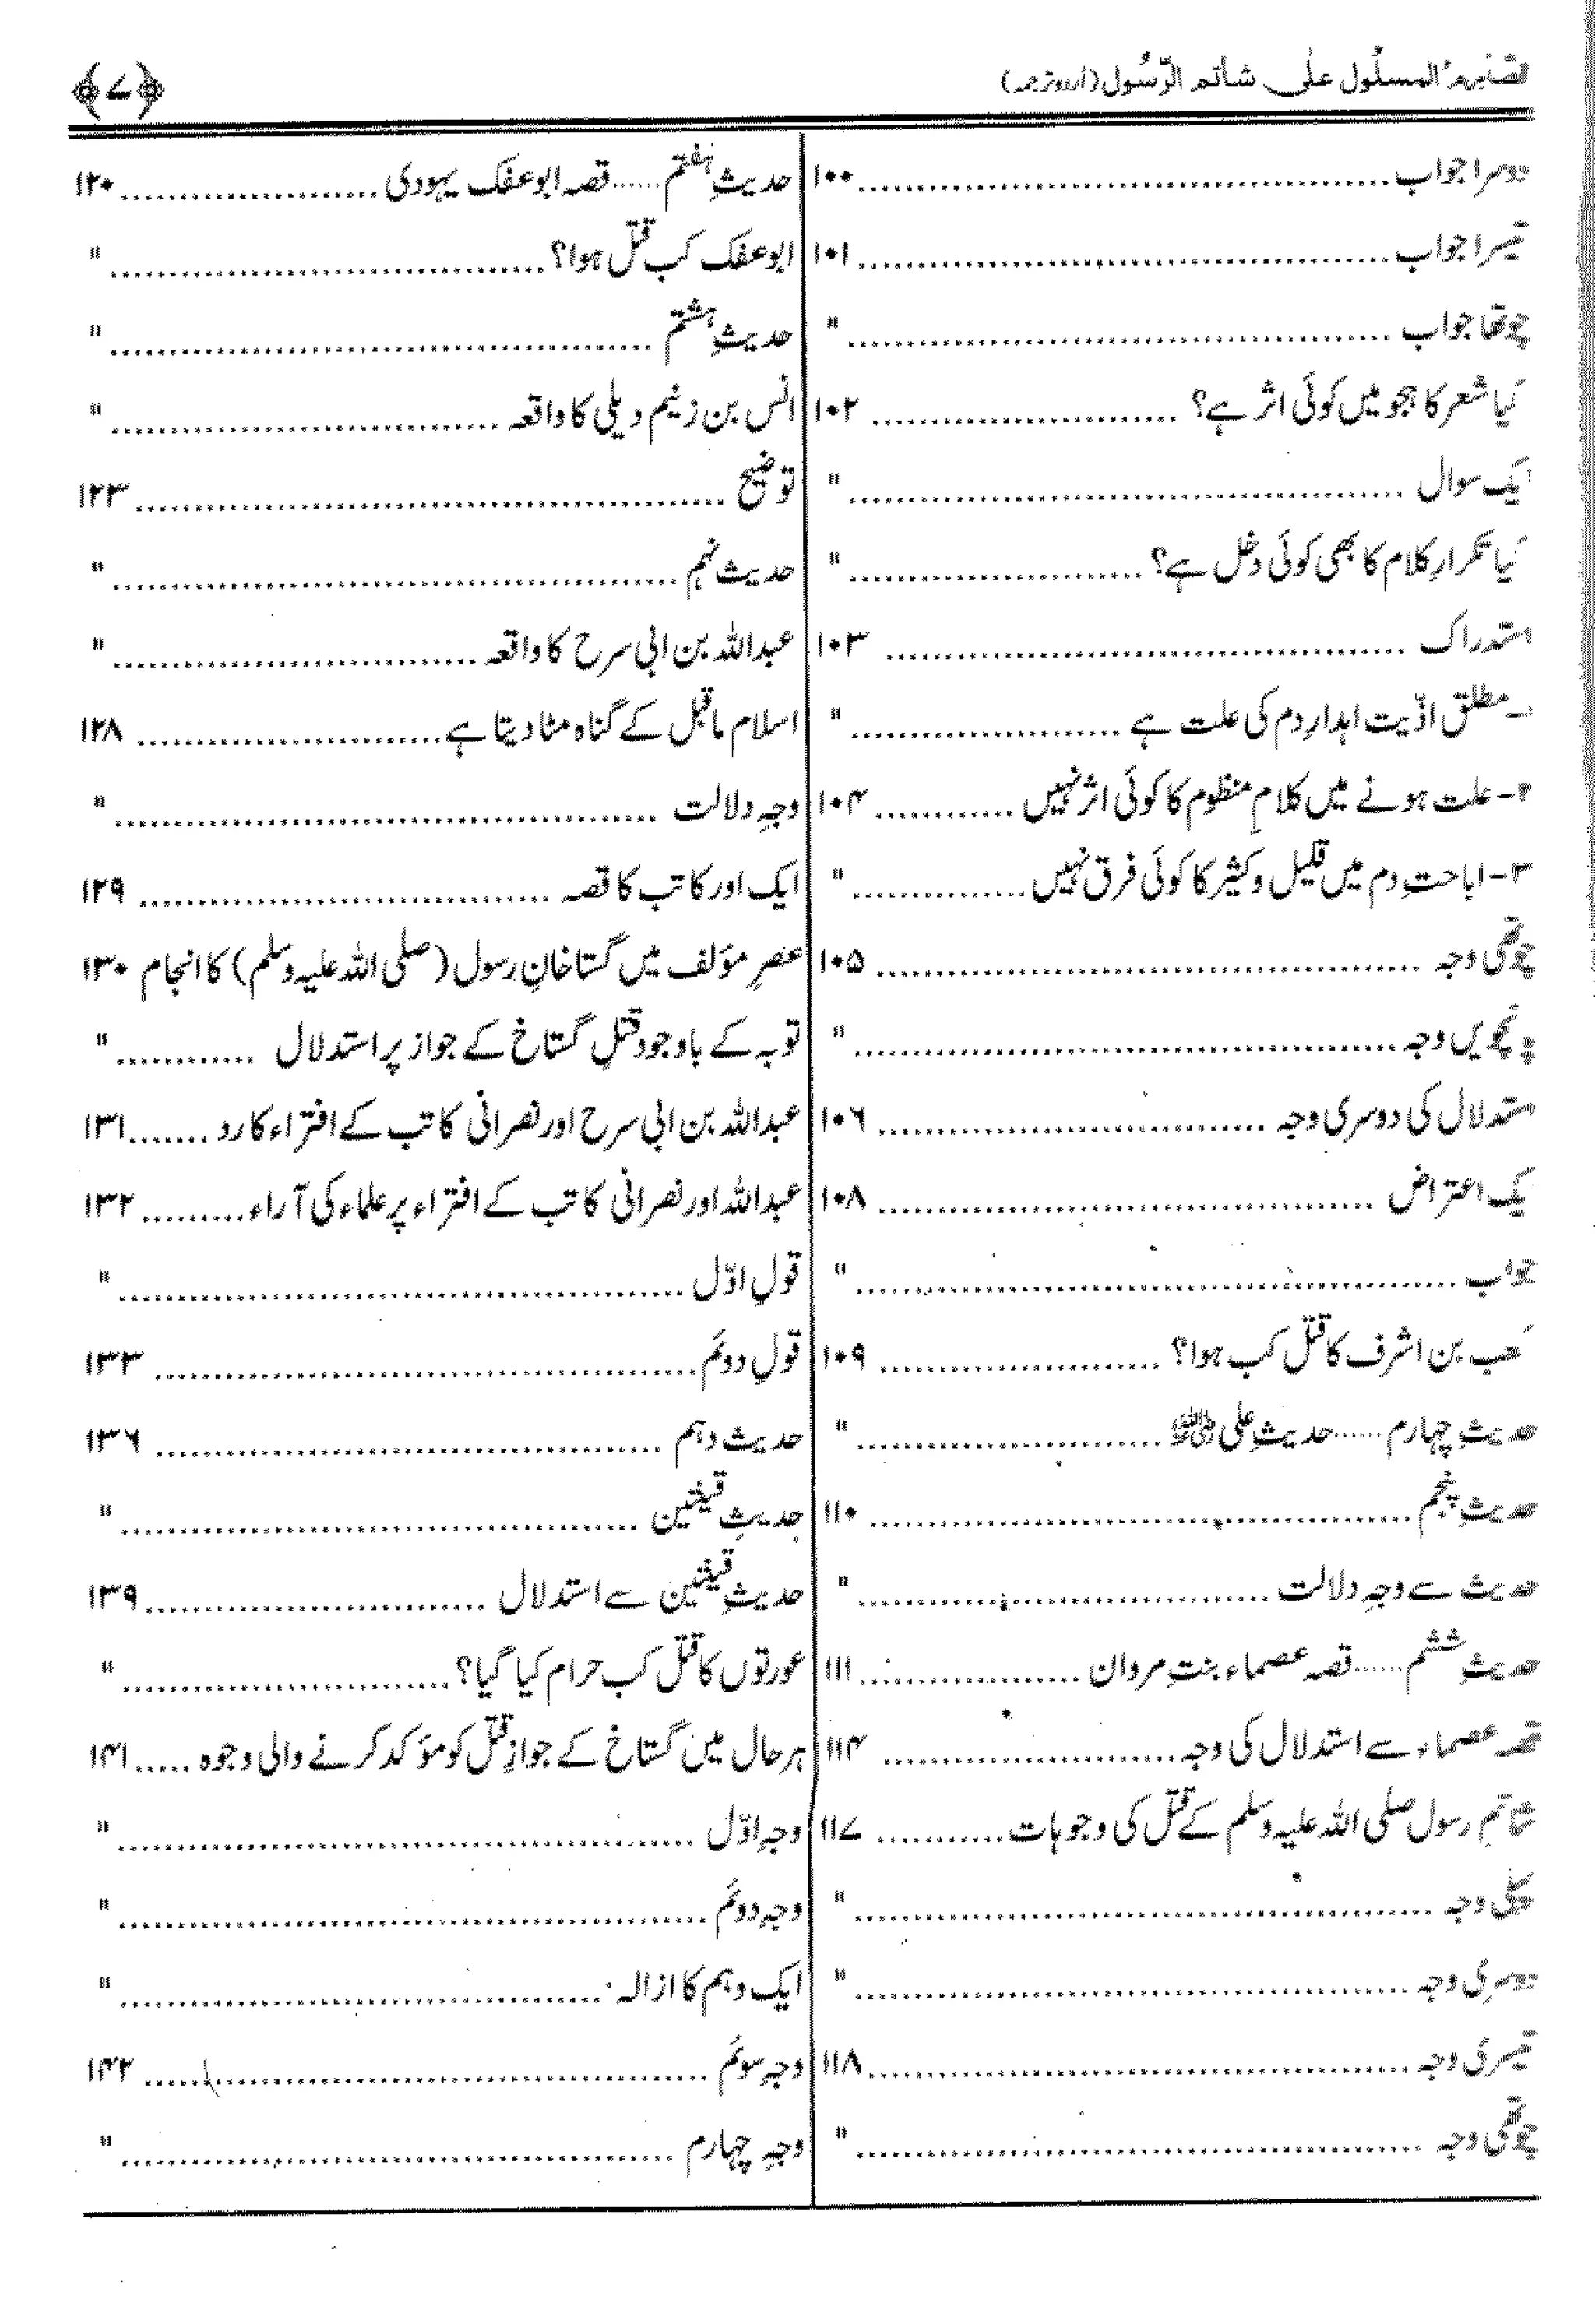 الصَّارِمُ المسلُول علٰى شاتم الرّسُول (اُردو ترجمہ)
﴿۷﴾
دوسرا جواب ........ ۱۰۰
تیسرا جواب ........ ۱۰۱
چوتھا جواب ........ "
کیا شعر کا ہجو میں کوئی اثر ہے؟ ........ ۱۰۲
ایک سوال ........ "
کیا تکرارِ کلام کا بھی کوئی دخل ہے؟ ........ "
استدراک ........ ۱۰۳
۱- مطلق اذّیت اہدارِ دم کی علت ہے ........ "
۲- علت ہونے میں کلامِ منظوم کا کوئی اثر نہیں ........ ۱۰۴
۳- اباحتِ دم میں قلیل و کثیر کا کوئی فرق نہیں ........ "
چوتھی وجہ ........ ۱۰۵
پانچویں وجہ ........ "
استدلال کی دوسری وجہ ........ ۱۰۶
ایک اعتراض ........ ۱۰۸
جواب ........ "
کعب بن اشرف کا قتل کب ہوا؟ ........ ۱۰۹
حدیثِ چہارم ...... حدیثِ علی رضی اللہ عنہ ........ "
حدیثِ پنجم ........ ۱۱۰
حدیث سے وجہِ دلالت ........ "
حدیثِ ششم ...... قصہ عصماء بنتِ مروان ........ ۱۱۱
قصہ عصماء سے استدلال کی وجہ ........ ۱۱۴
شاتمِ رسول صلی اللہ علیہ وسلم کے قتل کی وجوہات ........ ۱۱۷
پہلی وجہ ........ "
دوسری وجہ ........ "
تیسری وجہ ........ ۱۱۸
چوتھی وجہ ........ "
حدیثِ ہفتم ...... قصہ ابو عفک یہودی ........ ۱۲۰
ابو عفک کب قتل ہوا؟ ........ "
حدیثِ ہشتم ........ "
انس بن زنیم دیلی کا واقعہ ........ "
توضیح ........ ۱۲۳
حدیث نہم ........ "
عبداللہ بن ابی سرح کا واقعہ ........ "
اسلام ماقبل کے گناہ مٹا دیتا ہے ........ ۱۲۸
وجہِ دلالت ........ "
ایک اور کاتب کا قصہ ........ ۱۲۹
عصرِ مؤلف میں گستاخانِ رسول (صلی اللہ علیہ وسلم) کا انجام ۱۳۰
توبہ کے باوجود قتلِ گستاخ کے جواز پر استدلال ........ "
عبداللہ بن ابی سرح اور نصرانی کاتب کے افتراء کا رد ........ ۱۳۱
عبداللہ اور نصرانی کاتب کے افتراء پر علماء کی آراء ........ ۱۳۲
قولِ اوّل ........ "
قولِ دوئم ........ ۱۳۳
حدیث دہم ........ ۱۳۶
حدیثِ قینتین ........ "
حدیثِ قینتین سے استدلال ........ ۱۳۹
عورتوں کا قتل کب حرام کیا گیا؟ ........ "
ہر حال میں گستاخ کے جوازِ قتل کو مؤکد کرنے والی وجوہ ..... ۱۴۱
وجہِ اوّل ........ "
وجہِ دوئم ........ "
ایک وہم کا ازالہ ........ "
وجہِ سوئم ........ ۱۴۲
وجہِ چہارم ........ "